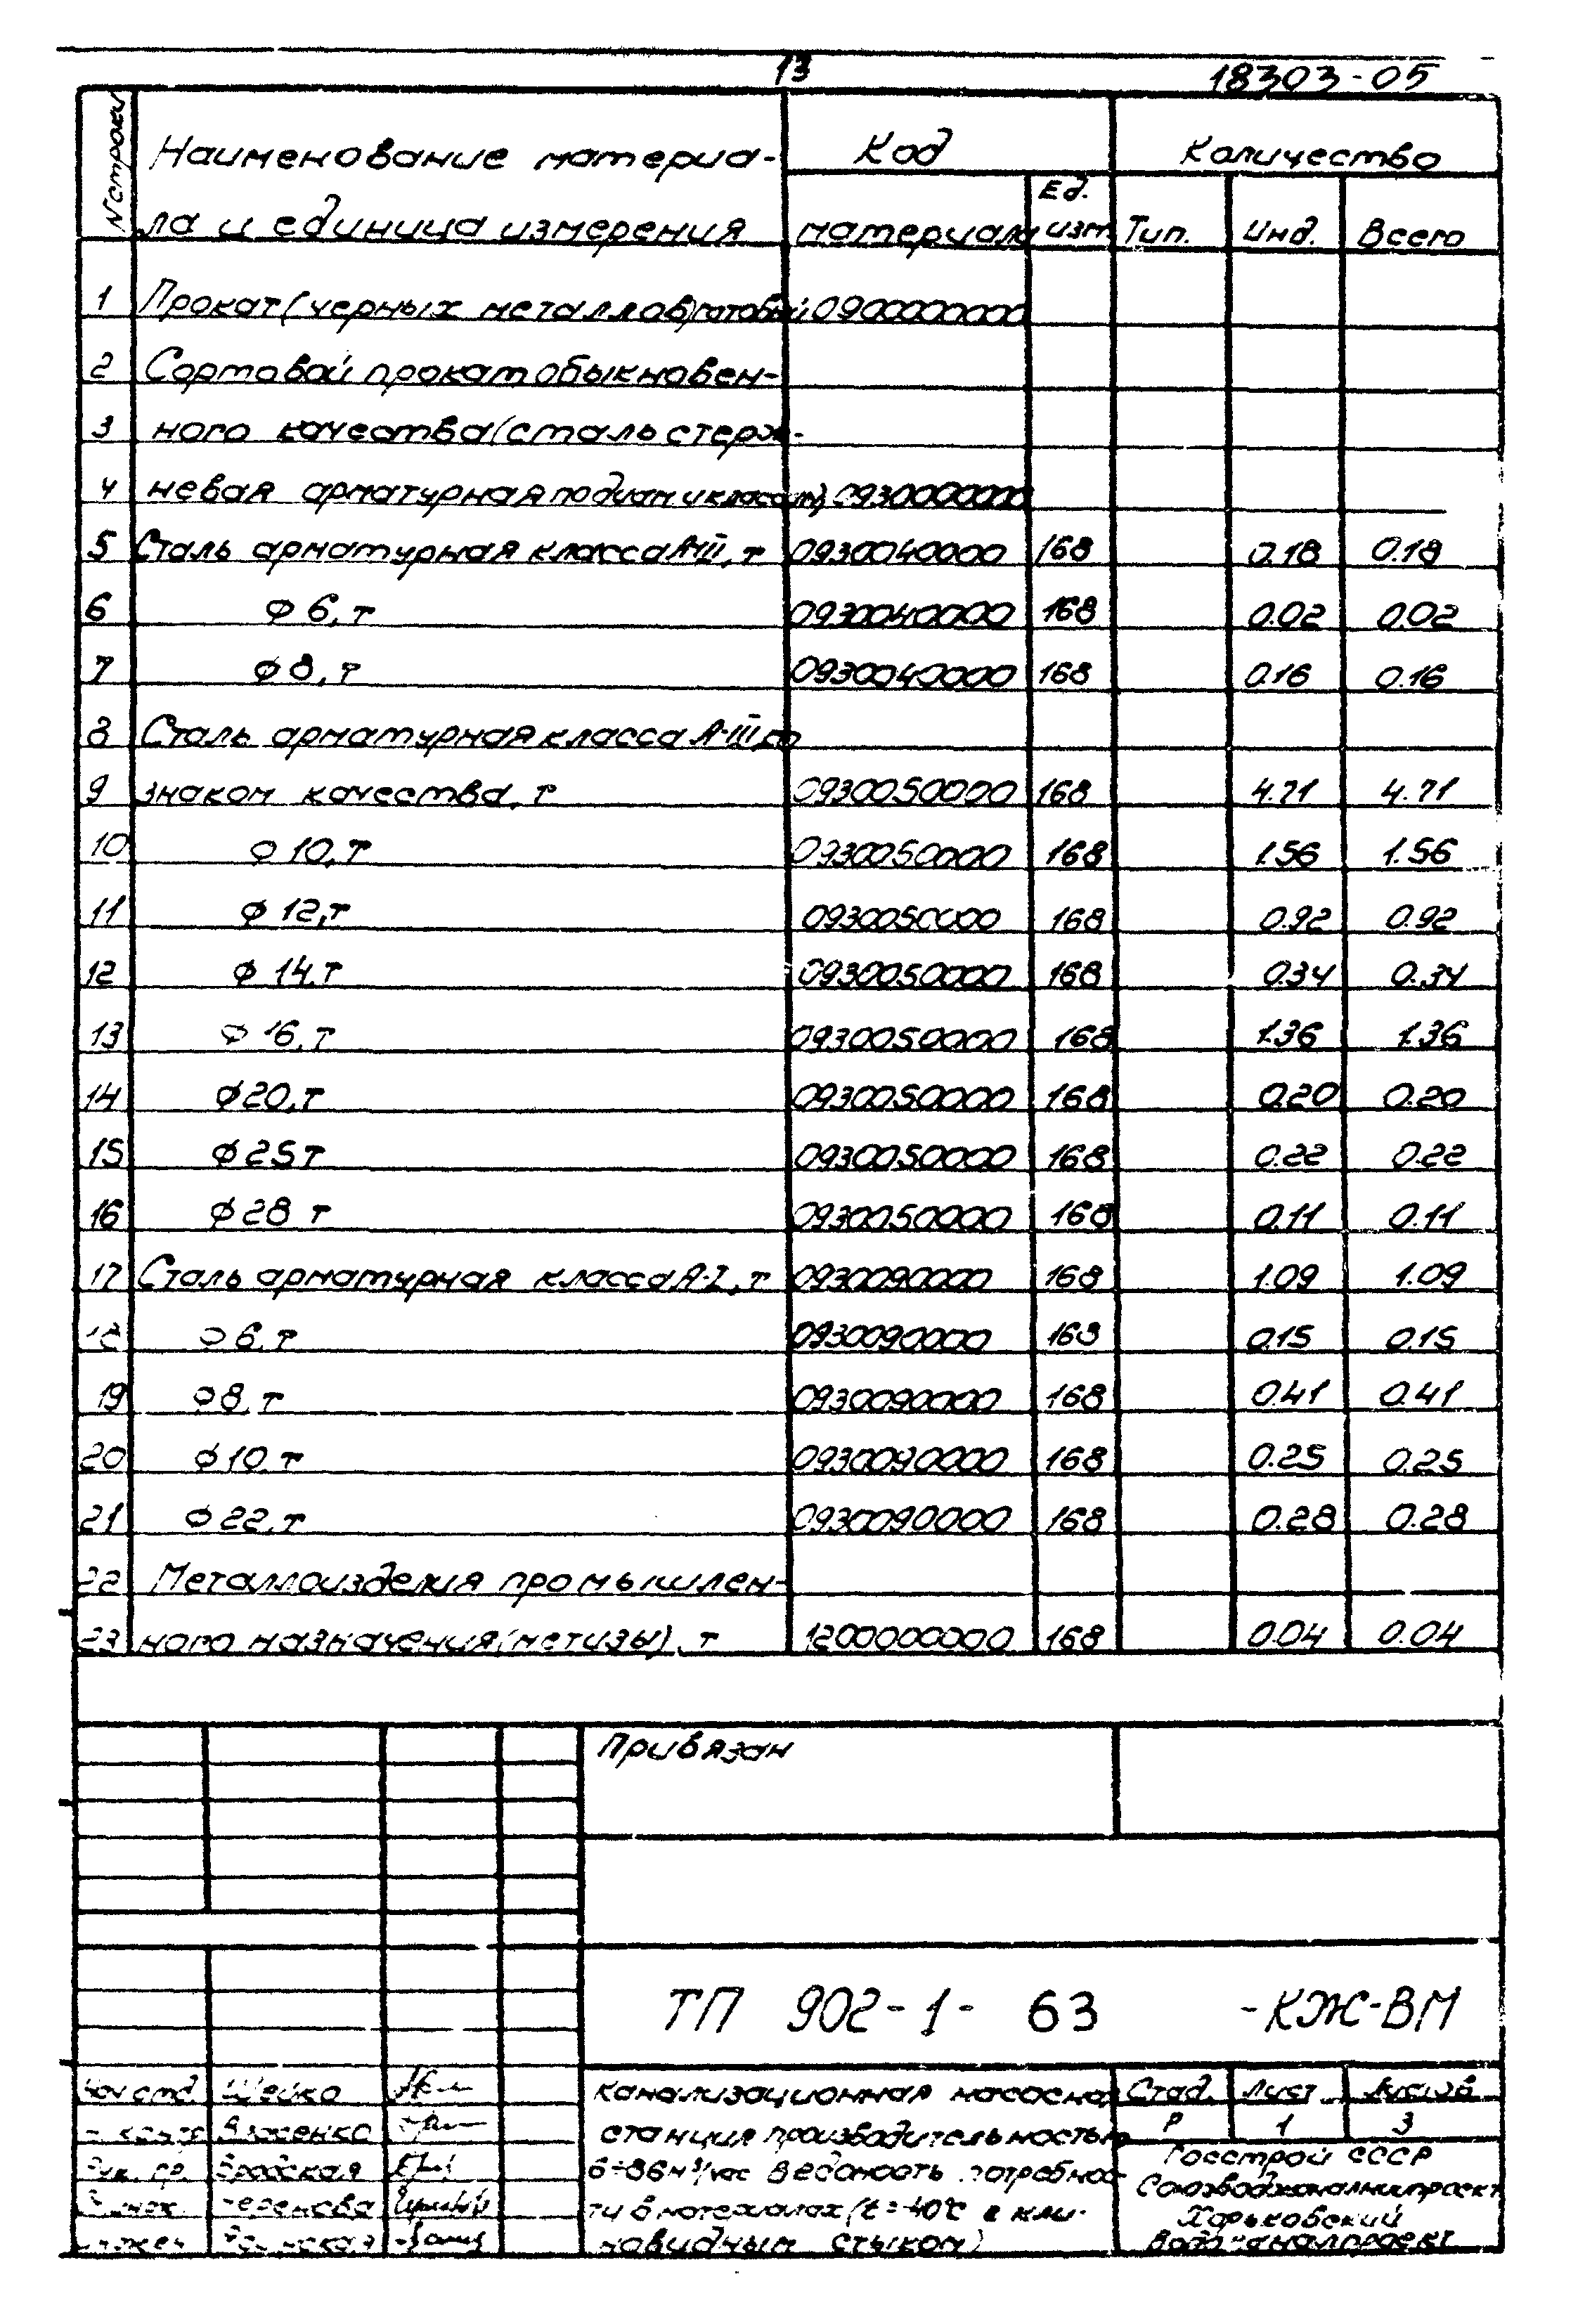 13
18303-05
N строки
Наименование материа-
ла и единица измерения
Код
материала
Ед. изм
Количество
Тип. Инд. Всего
1 Прокат (черных металлов) готовый 0900000000
2 Сортовой прокат обыкновен-
3 ного качества (сталь стерж-
4 невая арматурная по диам и классам) 0930000000
5 Сталь арматурная класса А-III, т 0930040000 168 0.18 0.18
6 ф 6, т 0930040000 168 0.02 0.02
7 ф 8, т 0930040000 168 0.16 0.16
8 Сталь арматурная класса А-III, со
9 знаком качества, т 0930050000 168 4.71 4.71
10 ф 10, т 0930050000 168 1.56 1.56
11 ф 12, т 0930050000 168 0.92 0.92
12 ф 14, т 0930050000 168 0.34 0.34
13 ф 16, т 0930050000 168 1.36 1.36
14 ф 20, т 0930050000 168 0.20 0.20
15 ф 25 т 0930050000 168 0.22 0.22
16 ф 28 т 0930050000 168 0.11 0.11
17 Сталь арматурная класса А-I, т 0930090000 168 1.09 1.09
18 ф 6, т 0930090000 168 0.15 0.15
19 ф 8, т 0930090000 168 0.41 0.41
20 ф 10, т 0930090000 168 0.25 0.25
21 ф 22, т 0930090000 168 0.28 0.28
22 Металлоизделия промышлен-
23 ного назначения (метизы), т 1200000000 168 0.04 0.04
Привязан
ТП 902-1- 63 -КЖ-ВМ
Нач отд. Шейко
контр Власенко
Рук. гр. Бродская
канализационная насосная
станция производительностью
6÷86 м³/час Ведомость потребнос-
ти в материалах (t=-40°С с кли-
новидным стыком)
Стад. Лист Листов
Р 1 3
Госстрой СССР
Союзводоканалниипроект
Харьковский
Водоканалпроект